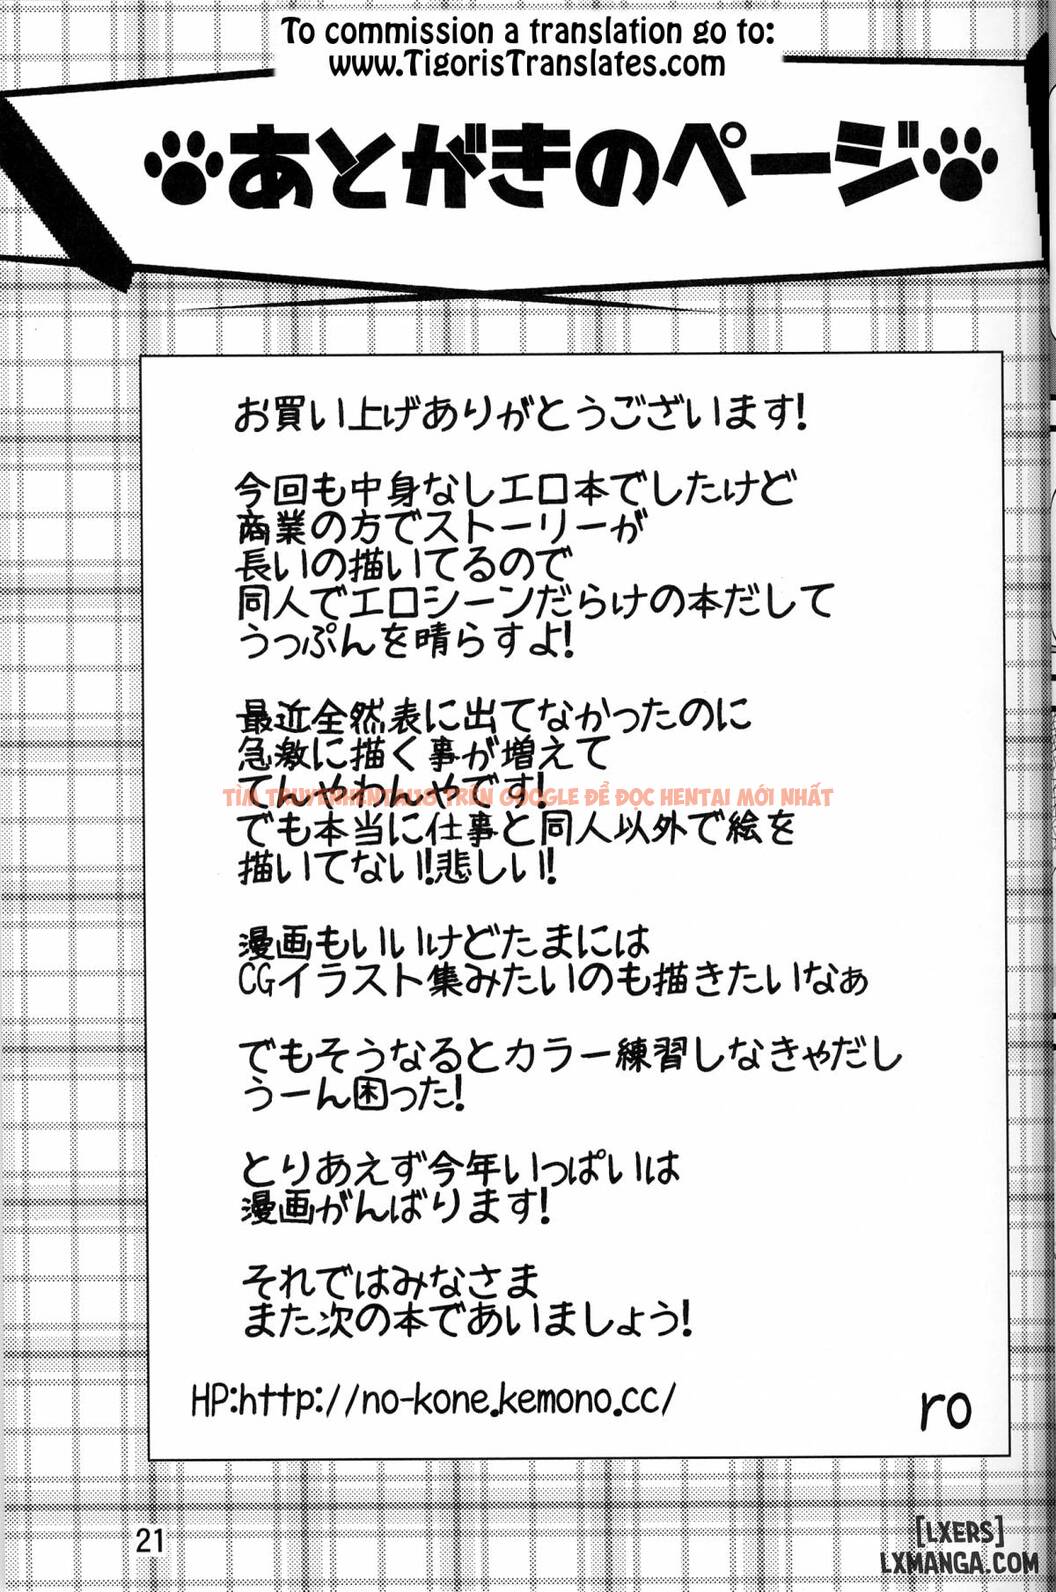 To commission a translation go to:
www.TigorisTranslates.com
あとがきのページ
お買い上げありがとうございます!
今回も中身なしエロ本でしたけど
商業の方でストーリーが
長いの描いてるので
同人でエロシーンだらけの本だして
うっぷんを晴らすよ!
最近全然表に出てなかったのに
急激に描く事が増えて
てんやわんやです!
TÌM TRUYENHENTAI18 TRÊN GOOGLE ĐỂ ĐỌC HENTAI MỚI NHẤT
でも本当に仕事と同人以外で絵を
描いてない!悲しい!
漫画もいいけどたまには
CGイラスト集みたいのも描きたいなぁ
でもそうなるとカラー練習しなきゃだし
うーん困った!
とりあえず今年いっぱいは
漫画がんばります!
それではみなさま
また次の本であいましょう!
HP:http://no-kone.kemono.cc/
ro
21
[LXERS]
LXMANGA.COM